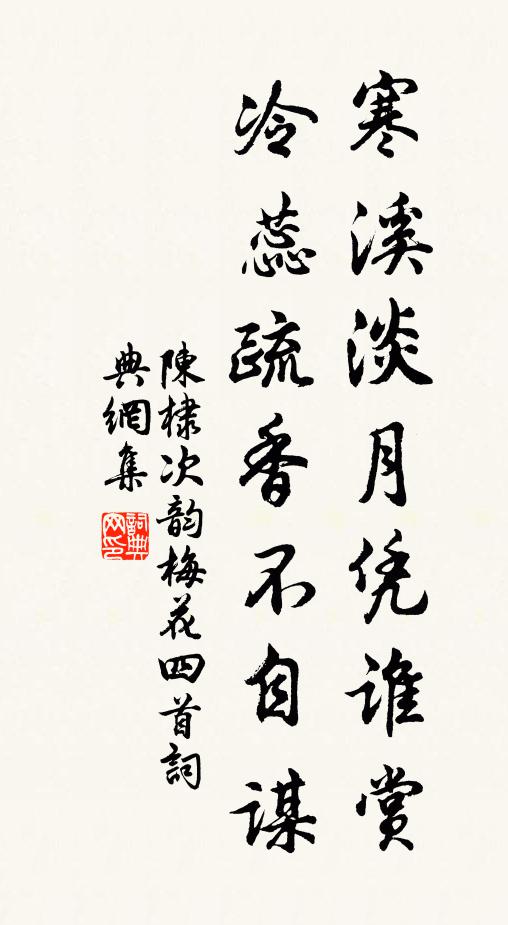 寒溪淡月凭谁赏
冷蕊疏香不自謀
陳棣次韵梅花四首詞
典網集
詞典
网印